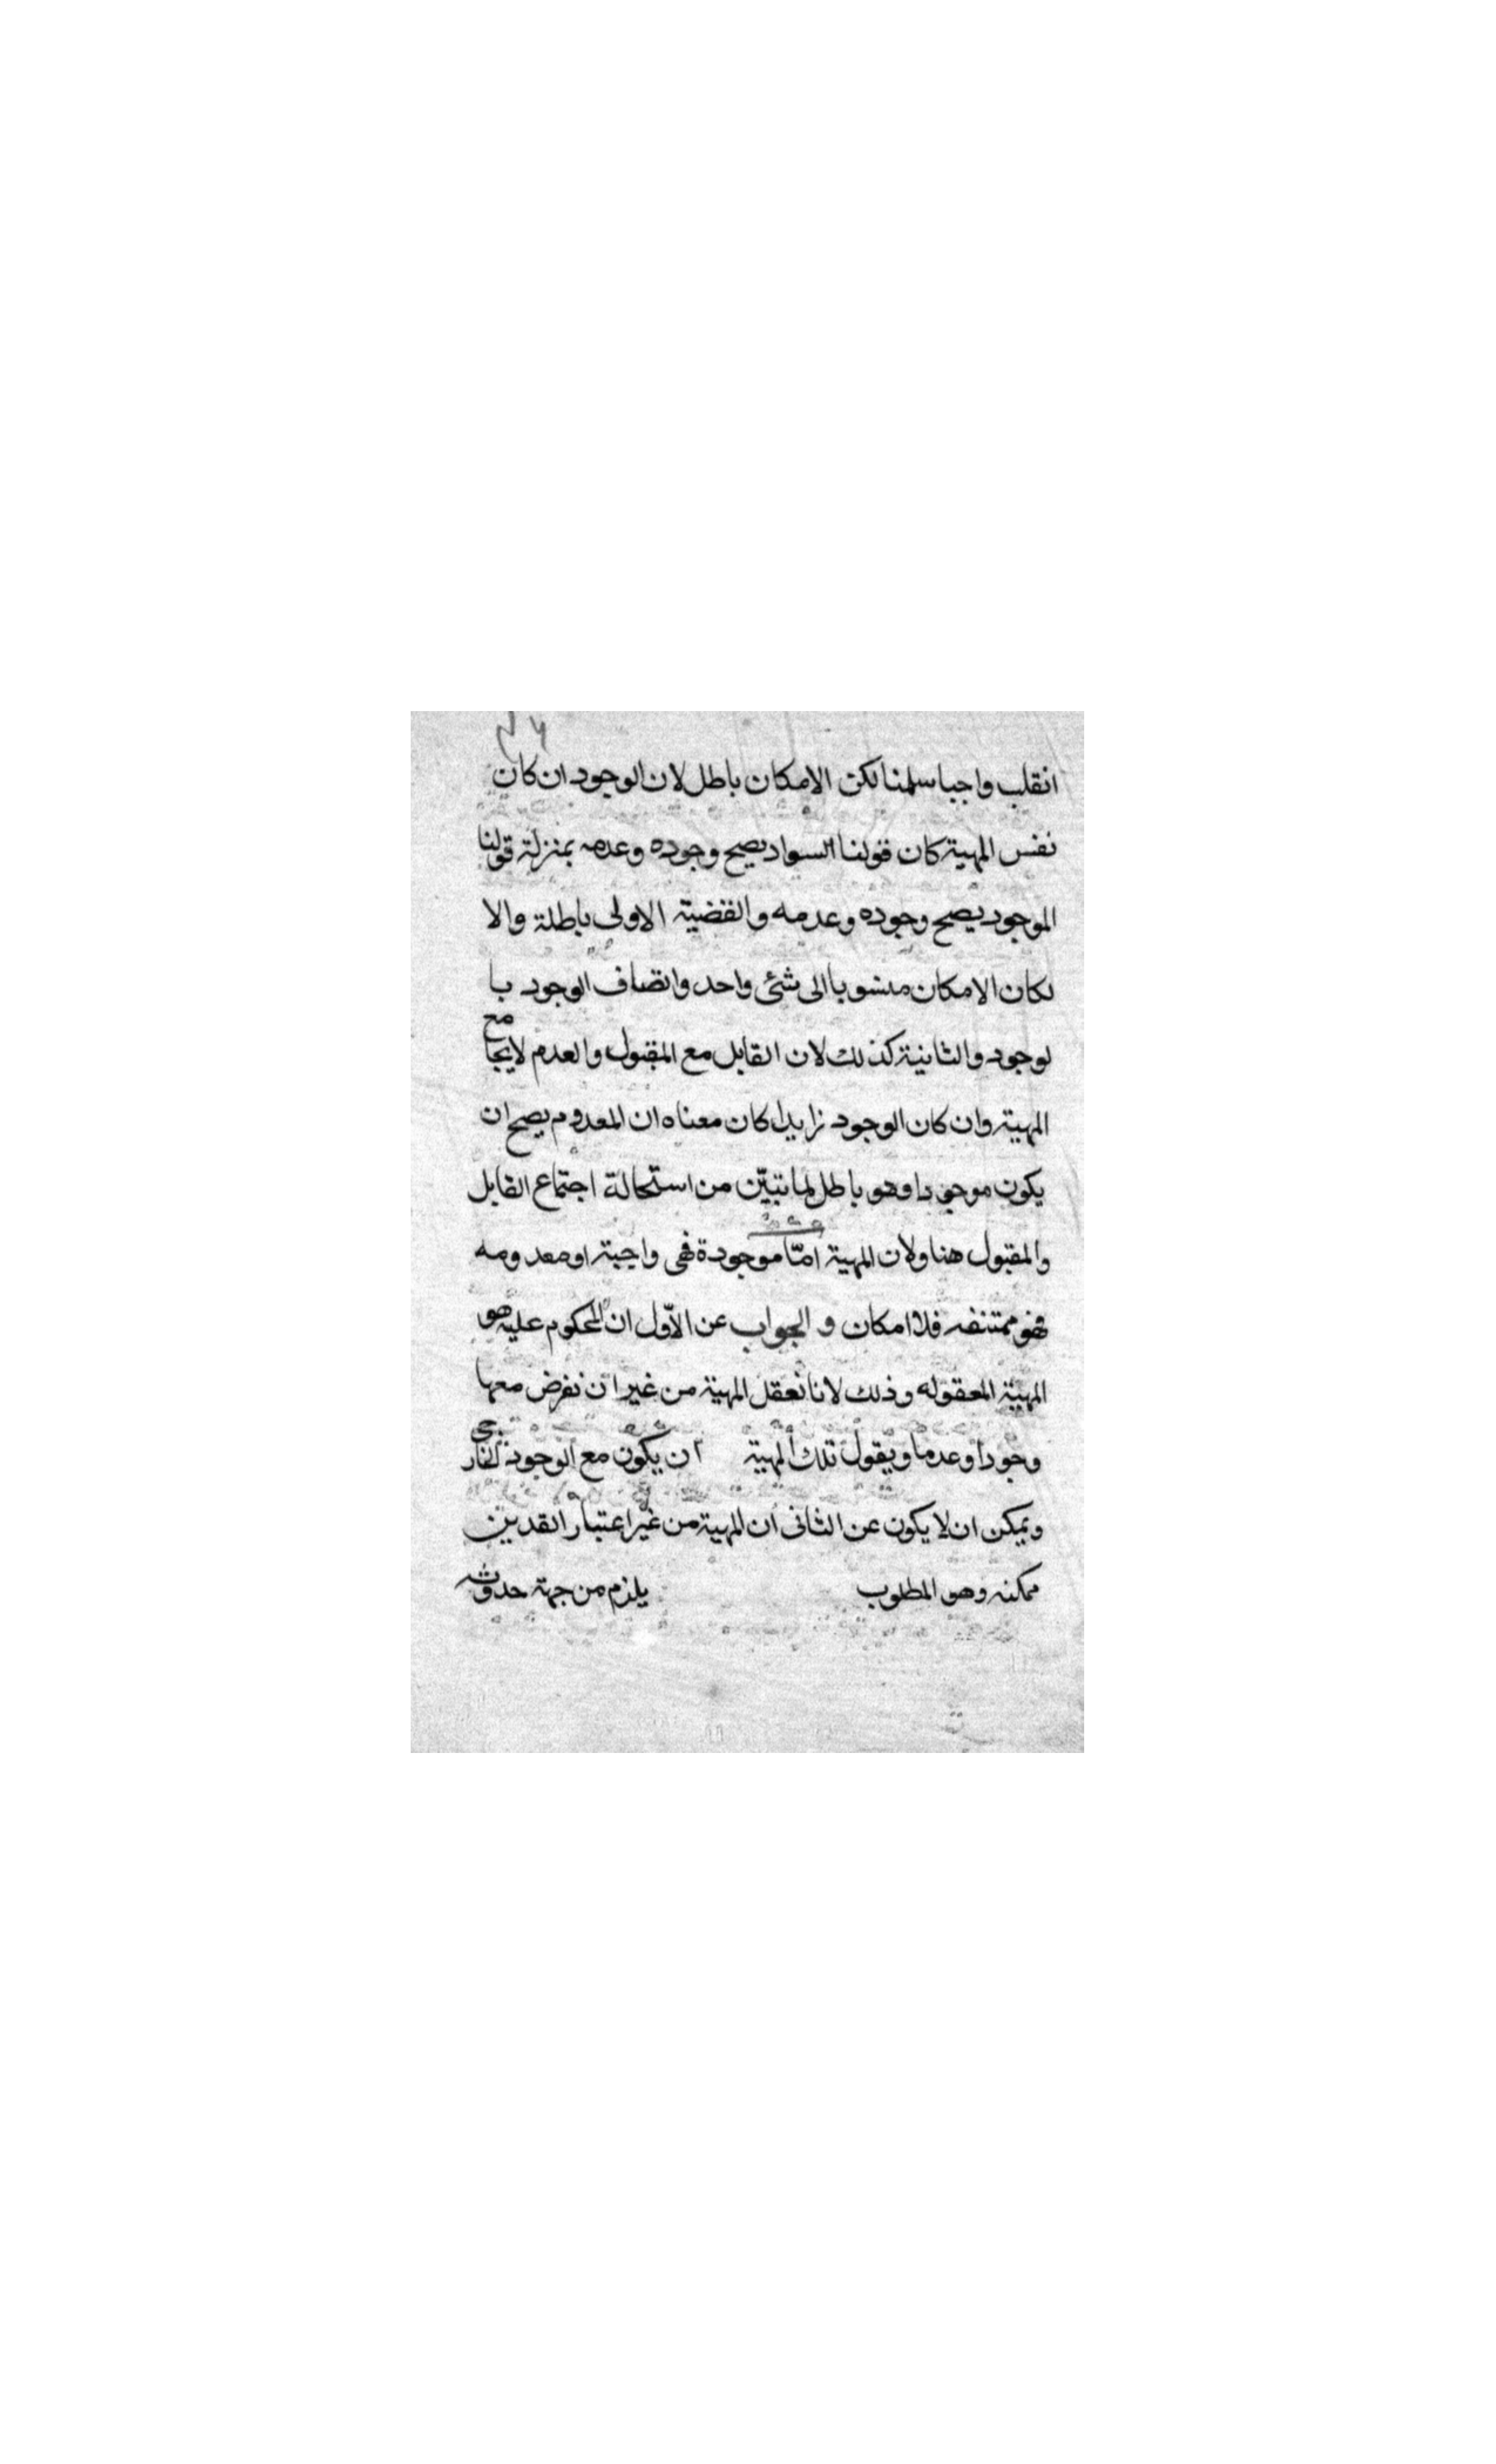 انقلب واجبا سلمنا لكن الامكان باطل لان الوجود ان كان
نفس المهية كان قولنا السواد يصح وجوده وعدمه بمنزلة قولنا
الموجود يصح وجوده وعدمه والقضية الاولى باطلة والا
لكان الامكان منسوبا الى شئ واحد واتصاف الوجود با
لوجود والثانية كذلك لان القابل مع المقبول والعدم لايجامع
المهية وان كان الوجود زايدا كان معناه ان المعدوم يصح ان
يكون موجودا وهو باطل لما تبيّن من استحالة اجتماع القابل
والمقبول هنا ولان المهية امّا موجودة فهى واجبة او معدومه
فهو ممتنعه فلا امكان و الجواب عن الاّول ان المحكوم عليه هو
المهية المعقوله وذلك لانا نعقل المهية من غير ان نفرض معها
وجودا وعدما ويقول تلك المهية ان يكون مع الوجود الخارجى
ويمكن ان لا يكون عن الثانى ان المهية من غير اعتبار القدين
ممكنه وهو المطلوب يلزم من جهة حدوثه